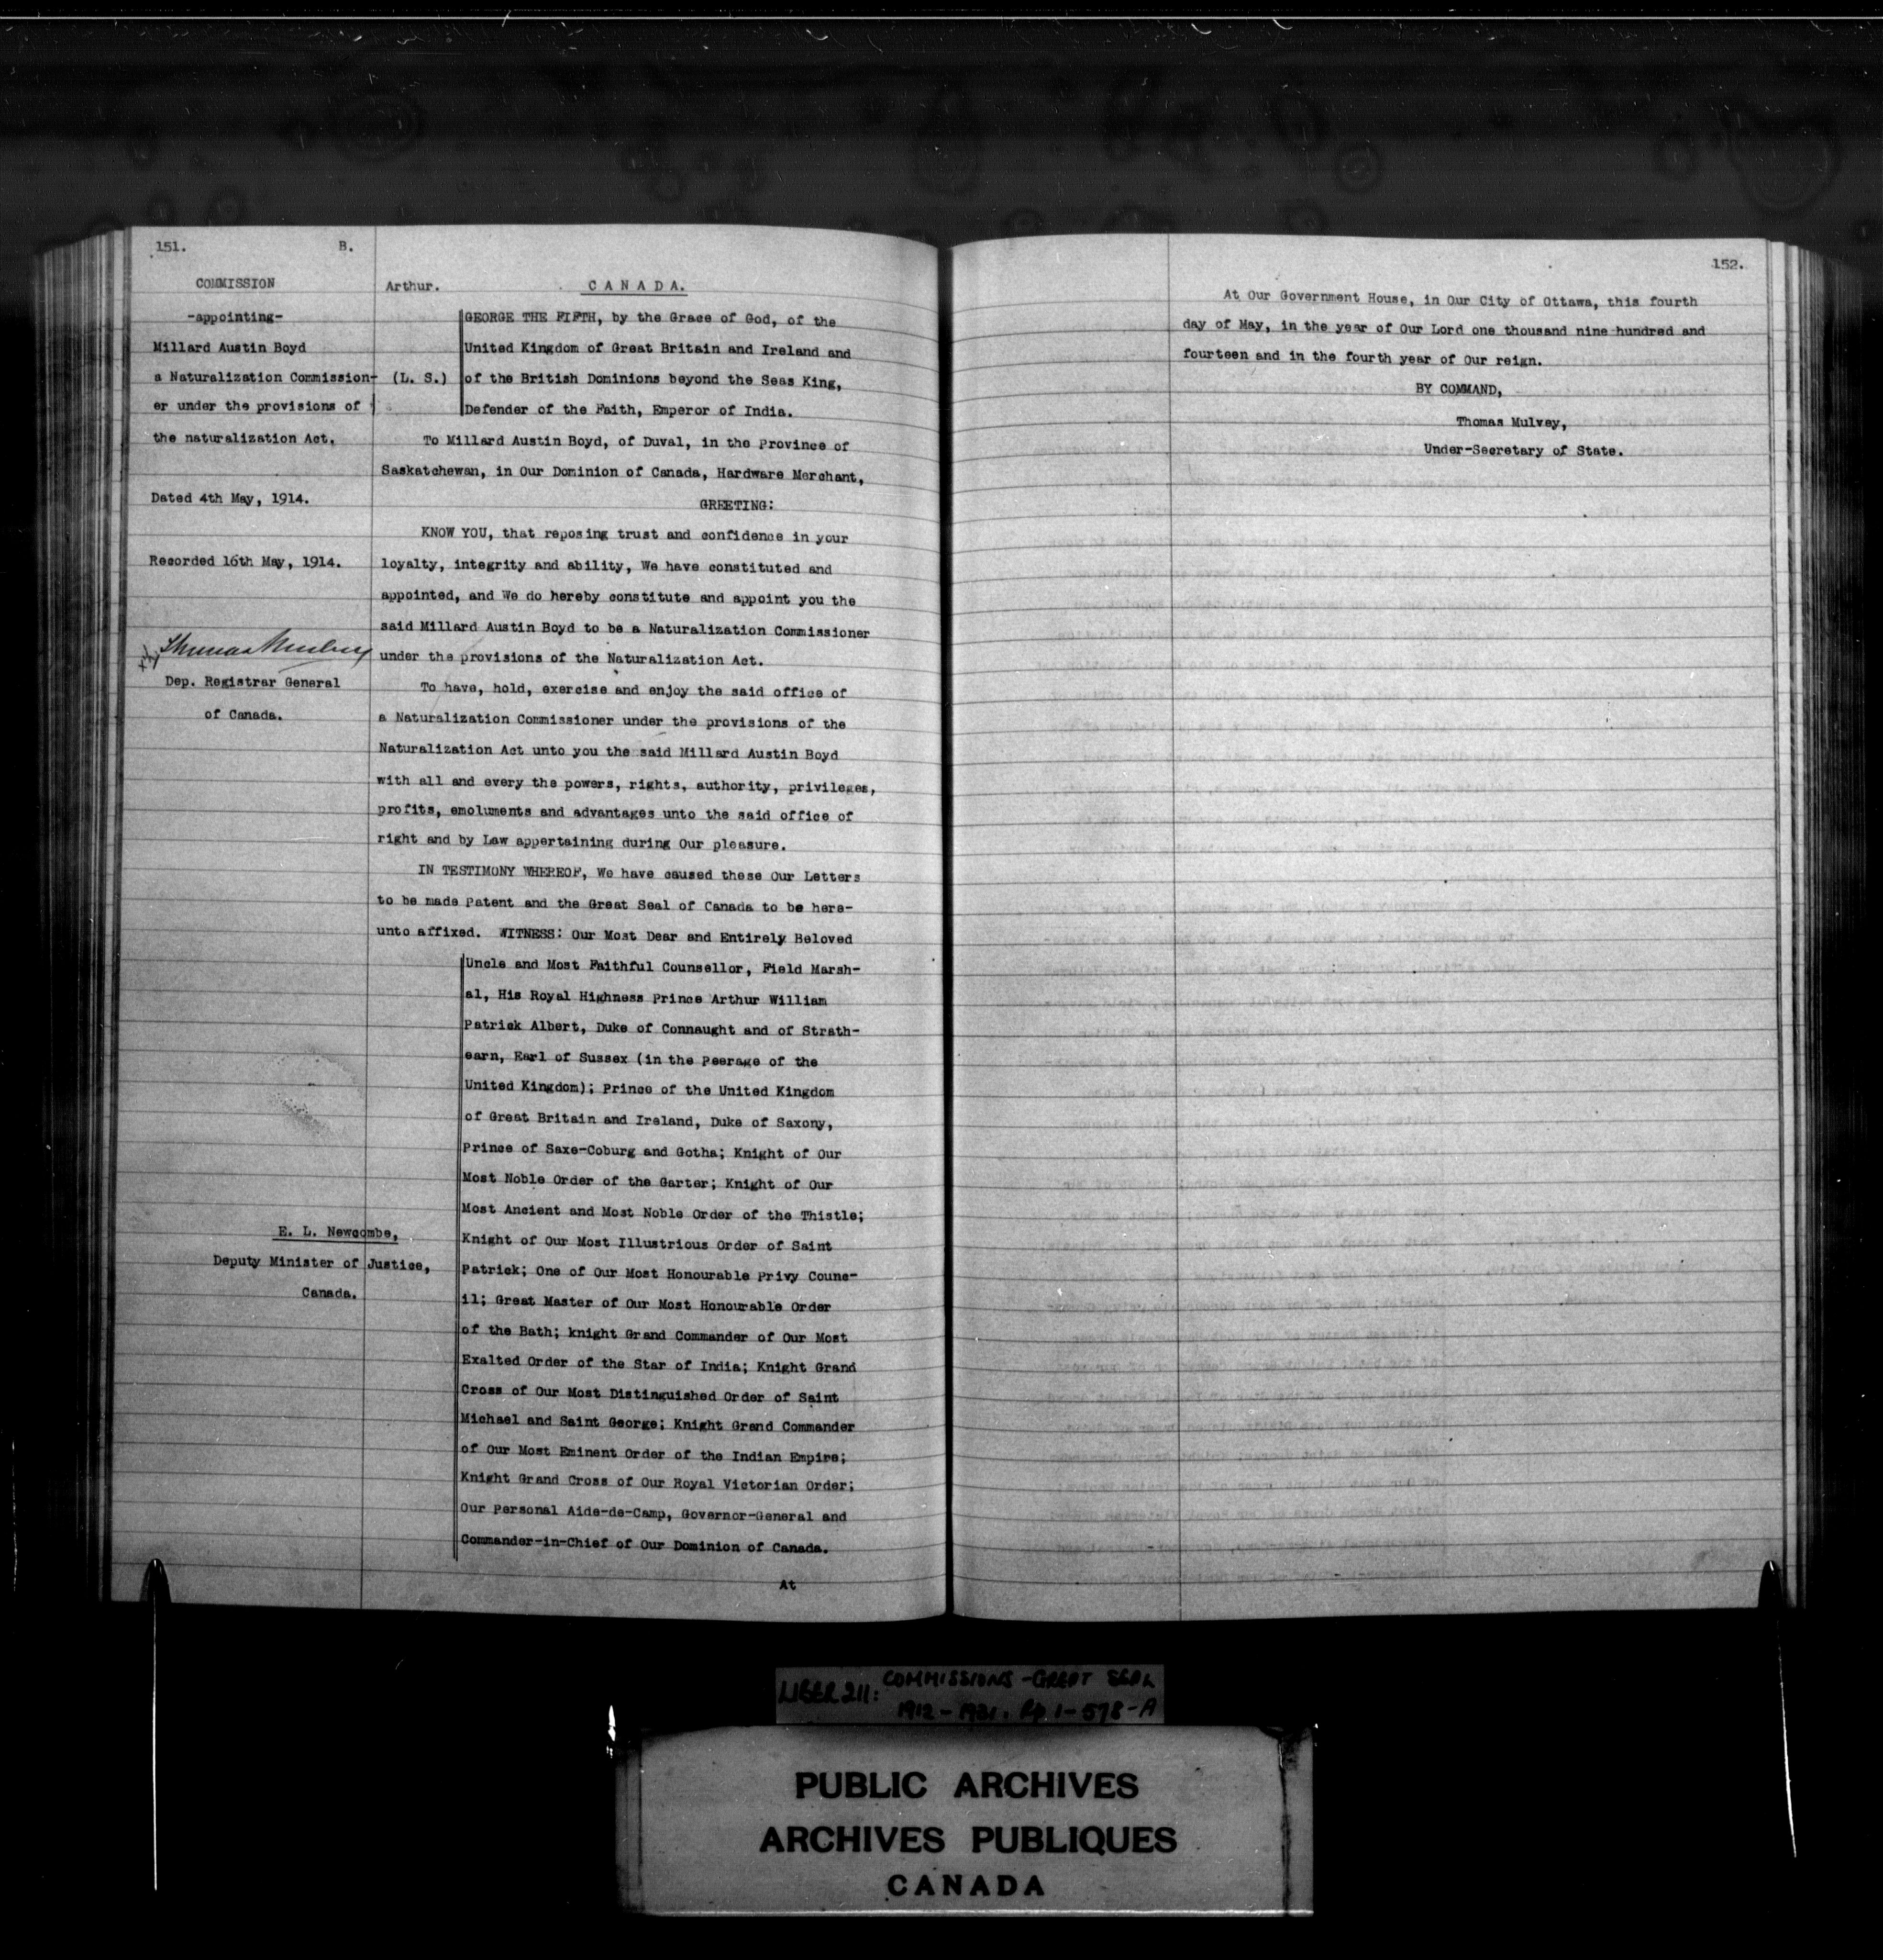 151.
B.
COMMISSION
-appointing-
Millard Austin Boyd
a Naturalization Commission-
er under the provisions of
the naturalization Act.
Dated 4th May, 1914.
Recorded 16th May, 1914.
Thomas Mulvey
Dep. Registrar General
of Canada.
E. L. Newcombe,
Deputy Minister of Justice,
Canada.
Arthur.
CANADA.
(L. S.)
GEORGE THE FIFTH, by the Grace of God, of the
United Kingdom of Great Britain and Ireland and
of the British Dominions beyond the Seas King,
Defender of the Faith, Emperor of India.
To Millard Austin Boyd, of Duval, in the Province of
Saskatchewan, in Our Dominion of Canada, Hardware Merchant,
GREETING:
KNOW YOU, that reposing trust and confidence in your
loyalty, integrity and ability, We have constituted and
appointed, and We do hereby constitute and appoint you the
said Millard Austin Boyd to be a Naturalization Commissioner
under the provisions of the Naturalization Act.
To have, hold, exercise and enjoy the said office of
a Naturalization Commissioner under the provisions of the
Naturalization Act unto you the said Millard Austin Boyd
with all and every the powers, rights, authority, privileges,
profits, emoluments and advantages unto the said office of
right and by Law appertaining during Our pleasure.
IN TESTIMONY WHEREOF, We have caused these Our Letters
to be made Patent and the Great Seal of Canada to be here-
unto affixed. WITNESS: Our Most Dear and Entirely Beloved
Uncle and Most Faithful Counsellor, Field Marsh-
al, His Royal Highness Prince Arthur William
Patrick Albert, Duke of Connaught and of Strath-
earn, Earl of Sussex (in the Peerage of the
United Kingdom); Prince of the United Kingdom
of Great Britain and Ireland, Duke of Saxony,
Prince of Saxe-Coburg and Gotha; Knight of Our
Most Noble Order of the Garter; Knight of Our
Most Ancient and Most Noble Order of the Thistle;
Knight of Our Most Illustrious Order of Saint
Patrick; One of Our Most Honourable Privy Counc-
il; Great Master of Our Most Honourable Order
of the Bath; knight Grand Commander of Our Most
Exalted Order of the Star of India; Knight Grand
Cross of Our Most Distinguished Order of Saint
Michael and Saint George; Knight Grand Commander
of Our Most Eminent Order of the Indian Empire;
Knight Grand Cross of Our Royal Victorian Order;
Our Personal Aide-de-Camp, Governor-General and
Commander-in-Chief of Our Dominion of Canada.
At
152.
At Our Government House, in Our City of Ottawa, this fourth
day of May, in the year of Our Lord one thousand nine hundred and
fourteen and in the fourth year of Our reign.
BY COMMAND,
Thomas Mulvey,
Under-Secretary of State.
LIBER 211: COMMISSIONS - GREAT SEAL
1912 - 1921. Pp. 1-578-A
PUBLIC ARCHIVES
ARCHIVES PUBLIQUES
CANADA